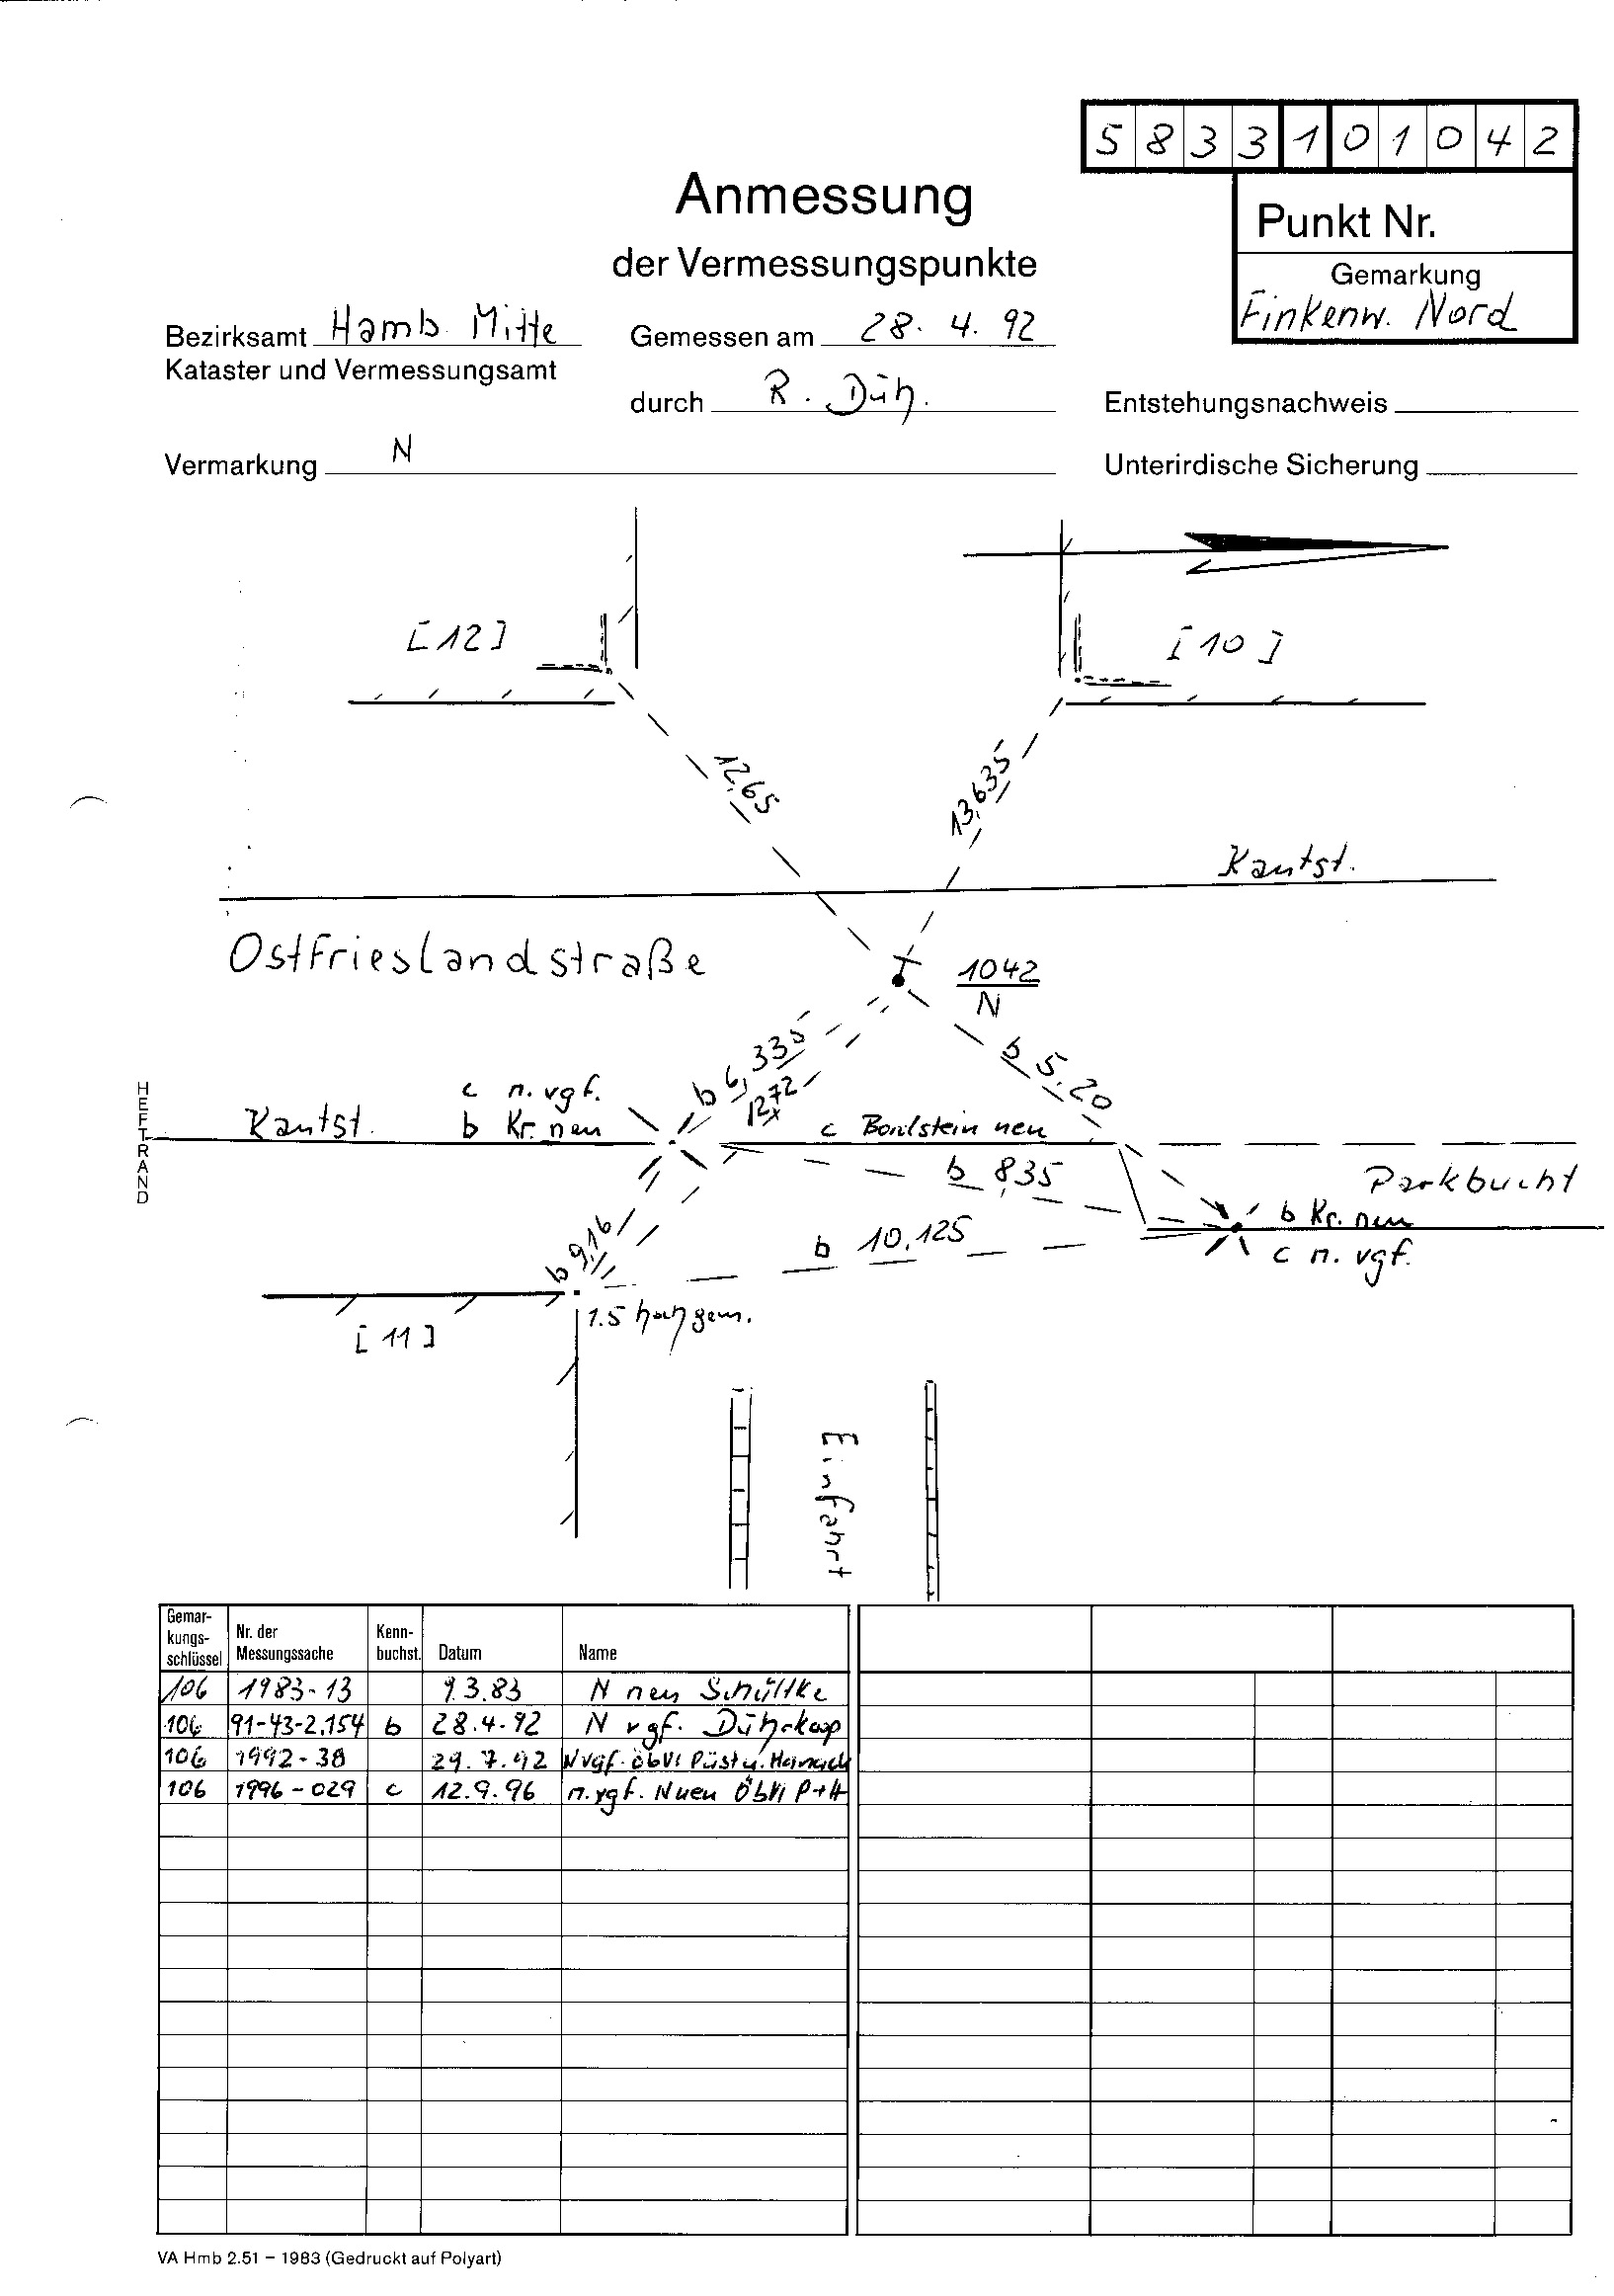 5833101042
Anmessung
der Vermessungspunkte
Punkt Nr.
Gemarkung
Finkenw. Nord
Bezirksamt Hamb. Mitte
Kataster und Vermessungsamt
Gemessen am 28. 4. 92
durch R. Düh.
Entstehungsnachweis
Vermarkung N
Unterirdische Sicherung
[12]
[10]
12,65
13,635
Kantst.
Ostfrieslandstraße
1042
N
b 6,335
12,72
b 5,20
c n. vgf.
Kantst. b Kr. neu
c Bordstein neu
b 8,35
Parkbucht
b Kr. neu
c n. vgf.
b 9,16
b 10,125
1.5 hoch gem.
[11]
Einfahrt
HEFTRAND
Gemar-kungs-schlüssel Nr. der Messungssache Kenn-buchst. Datum Name
106 1983-13 9.3.83 N neu Schültke
106 91-43-2.154 b 28.4.92 N vgf. Dührkoop
106 1992-38 29.7.92 N vgf. ÖbVI Püst u.
106 1996-029 c 12.9.96 n. vgf. N neu ÖbVI P+H
VA Hmb 2.51 – 1983 (Gedruckt auf Polyart)